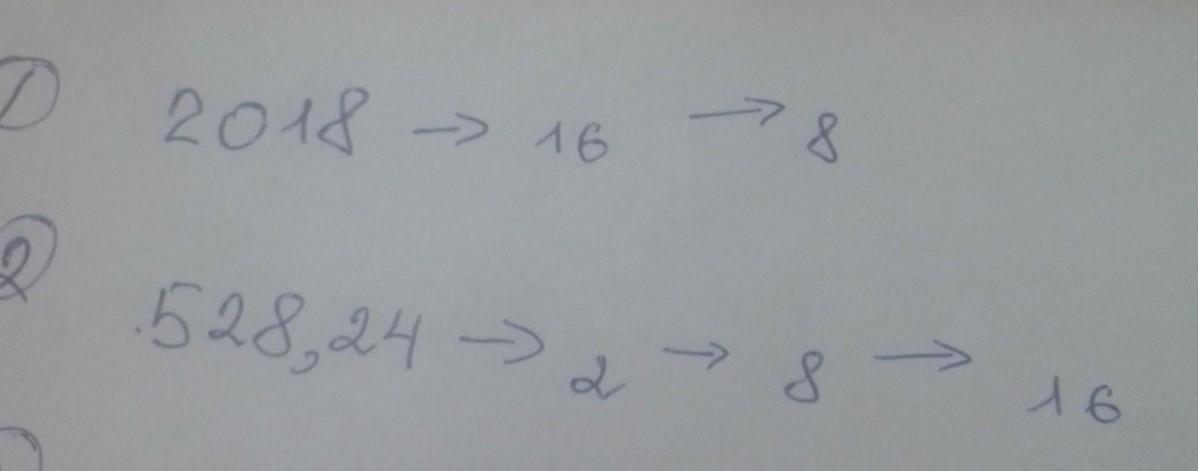 ① 2018 → 16 → 8
② 528,24 → 2 → 8 → 16